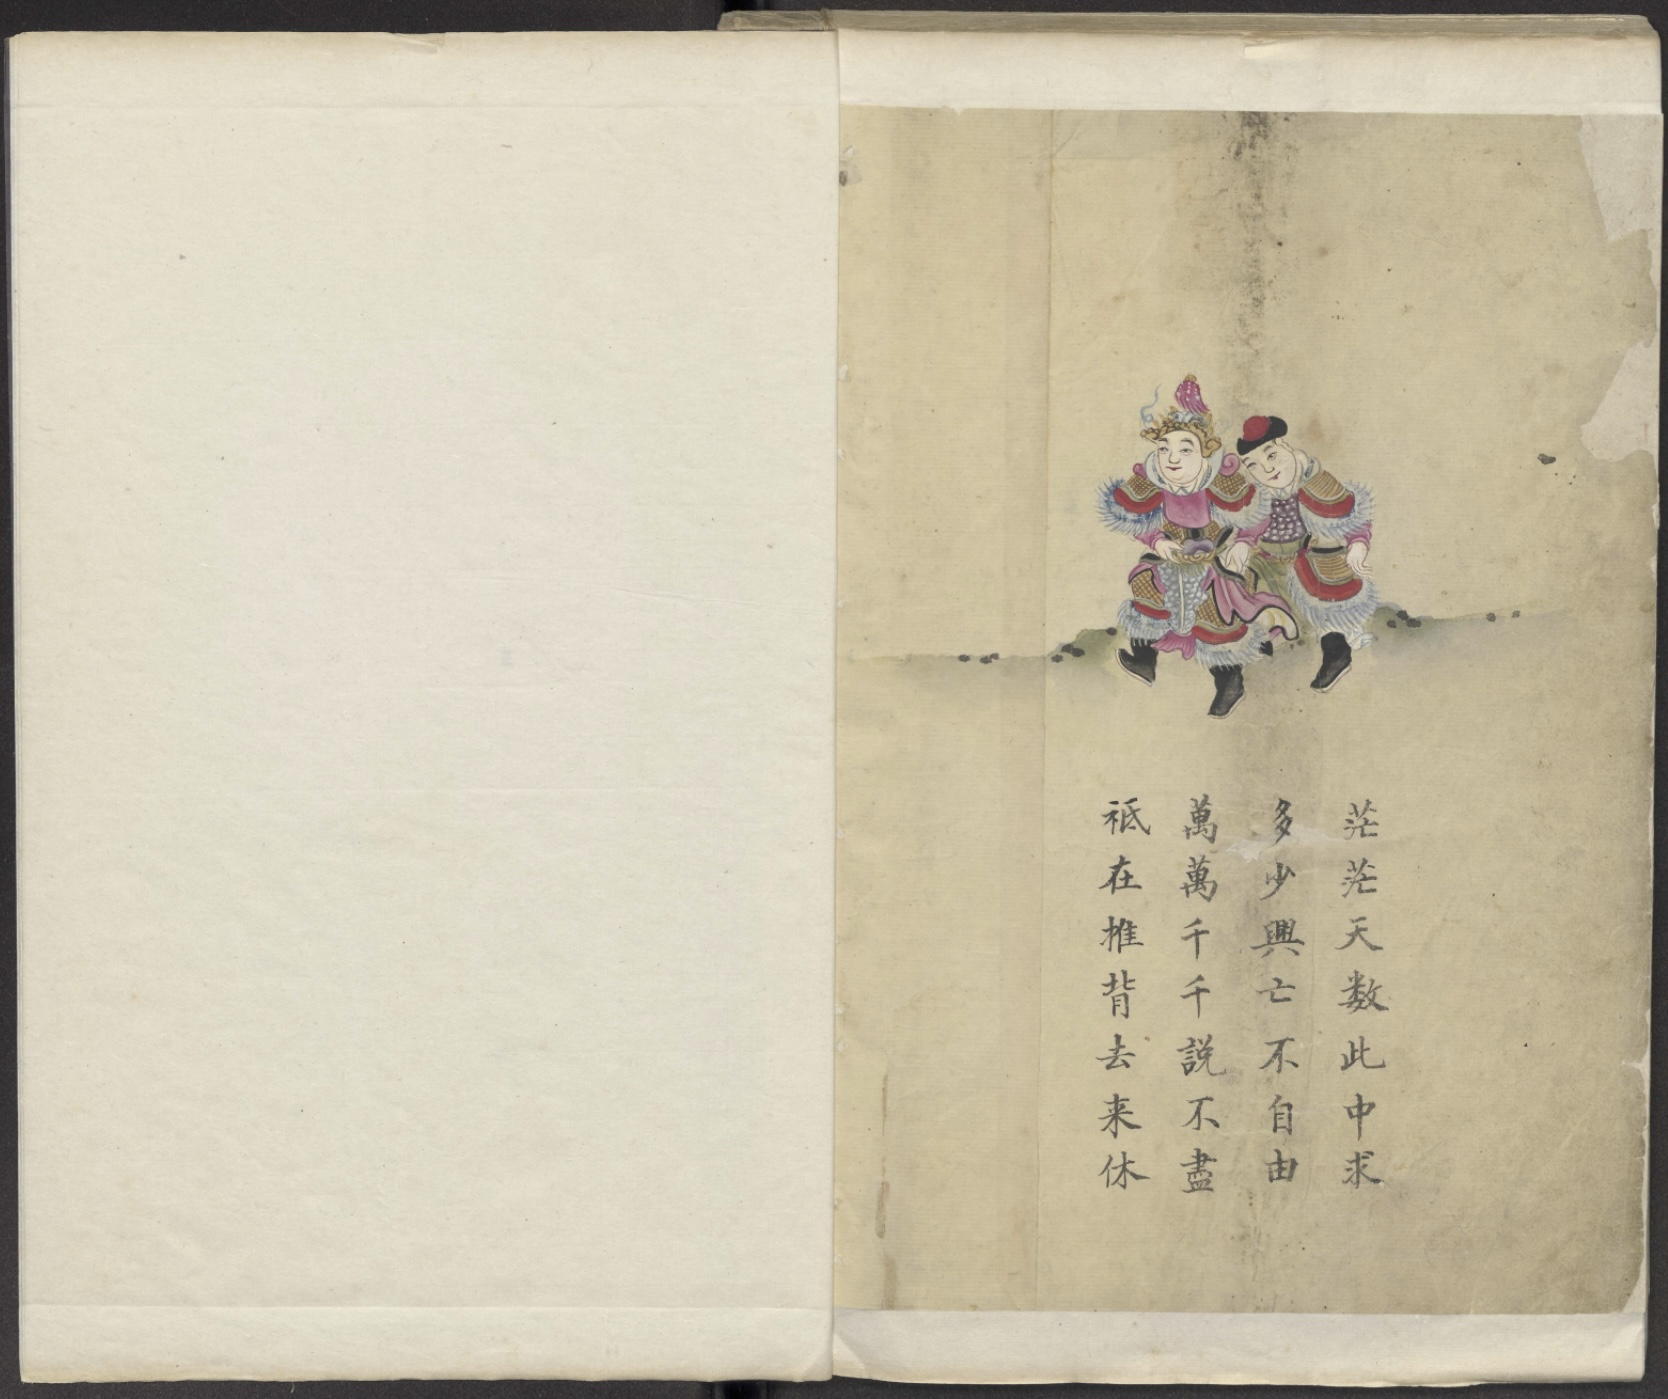 茫茫天数此中求
多少興亡不自由
萬萬千千説不盡
祇在推背去来休